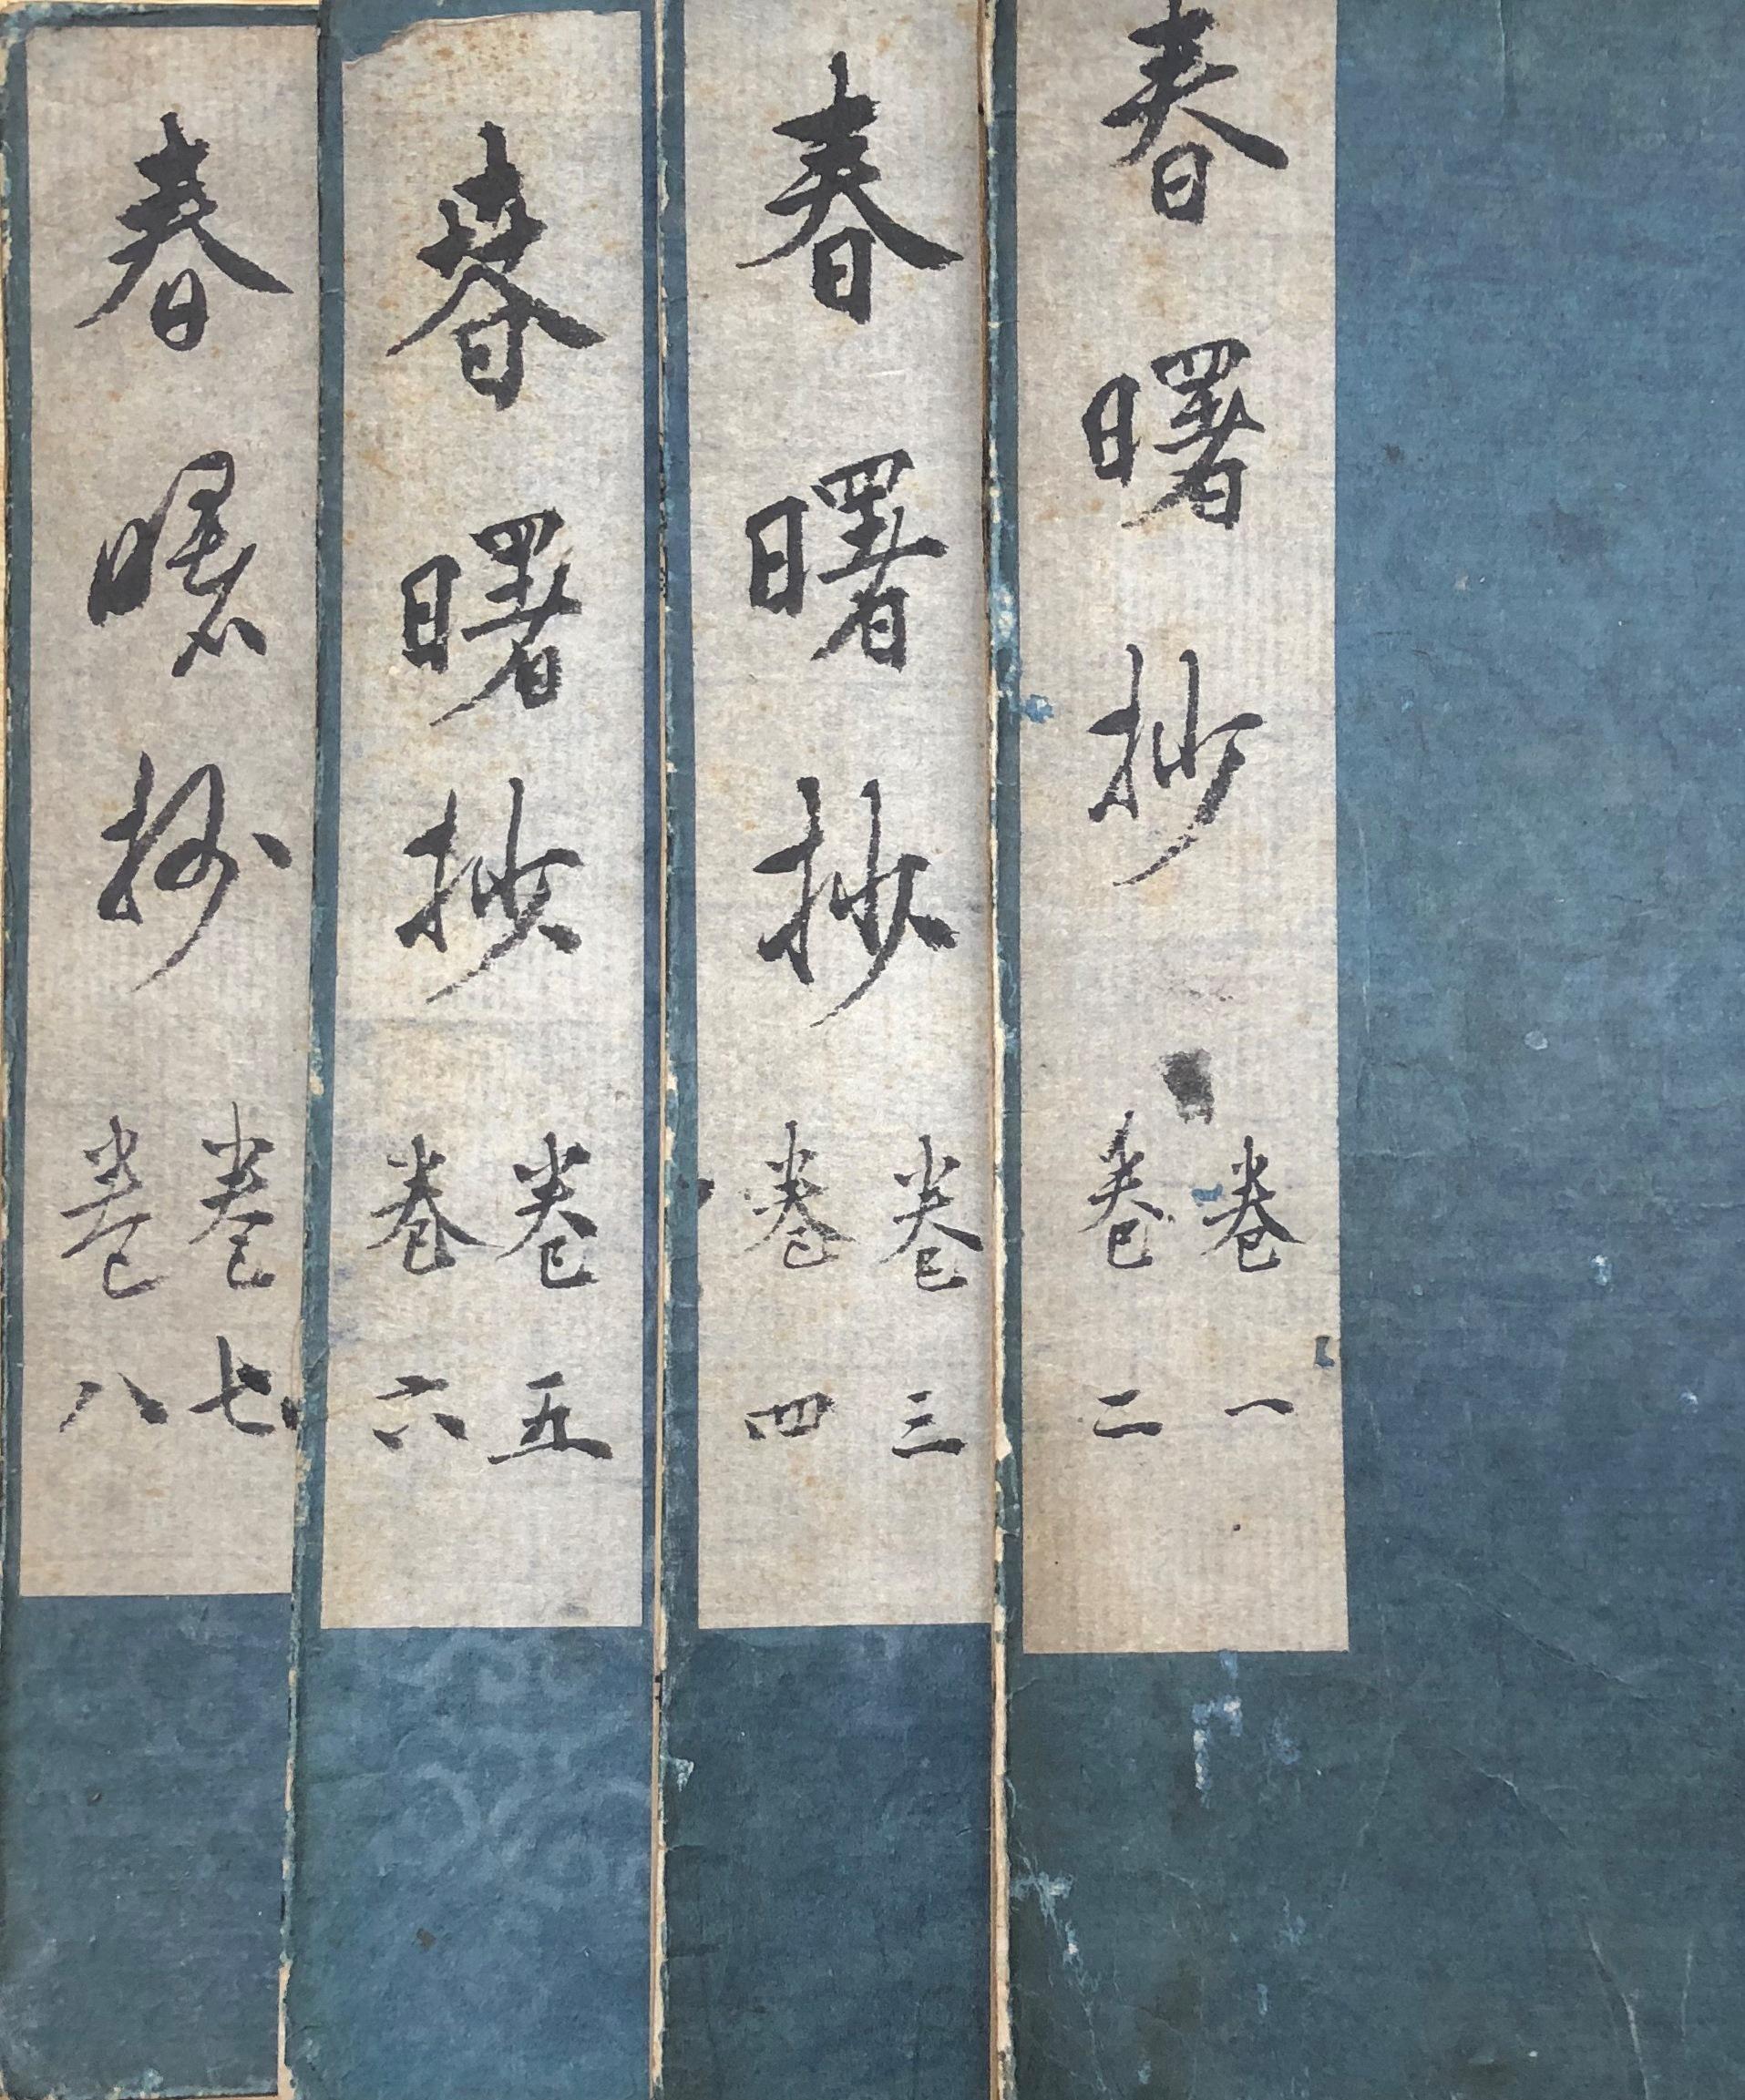 春曙抄
卷一
卷二
春曙抄
卷三
卷四
春曙抄
卷五
卷六
春曙抄
卷七
卷八